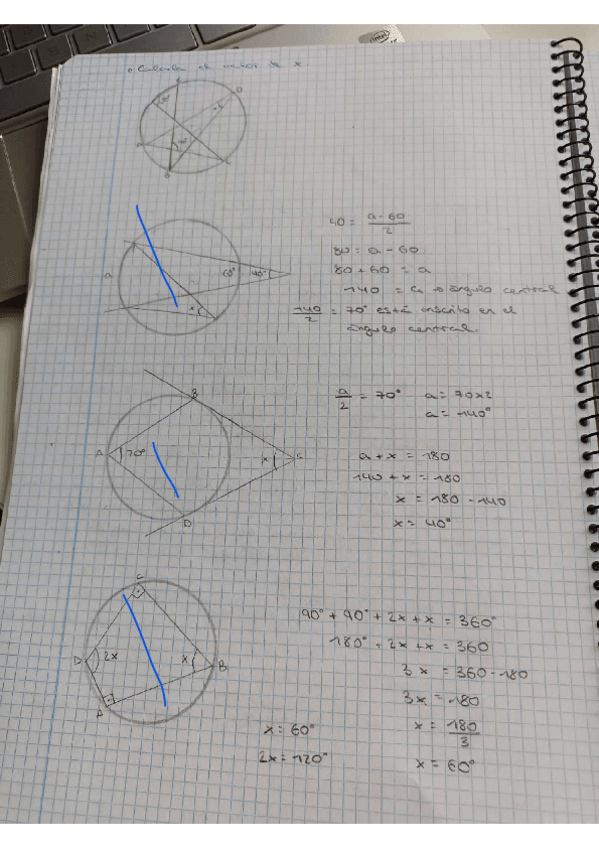 Calcula el valor de x
D
40 = a - 60 / 2
80 = a - 60
80 + 60 = a
140 = a → ángulo central
140 / 2 = 70° está inscrito en el
ángulo central.
a
60°
40°
x
a / 2 = 70° a = 70x2
a = 140°
B
A 70° x C
D
a + x = 180
140 + x = 180
x = 180 - 140
x = 40°
C
D 2x x B
A
90° + 90° + 2x + x = 360°
180° + 2x + x = 360
3x = 360 - 180
3x = 180
x = 180 / 3
x = 60°
x = 60°
2x = 120°